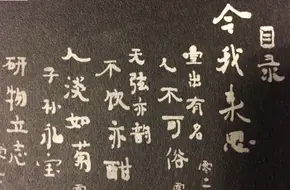 目录
今我来思
堂出有名
人不可俗
无弦亦韵
不饮亦酣
人淡如菊
子孙永宝
研物立志